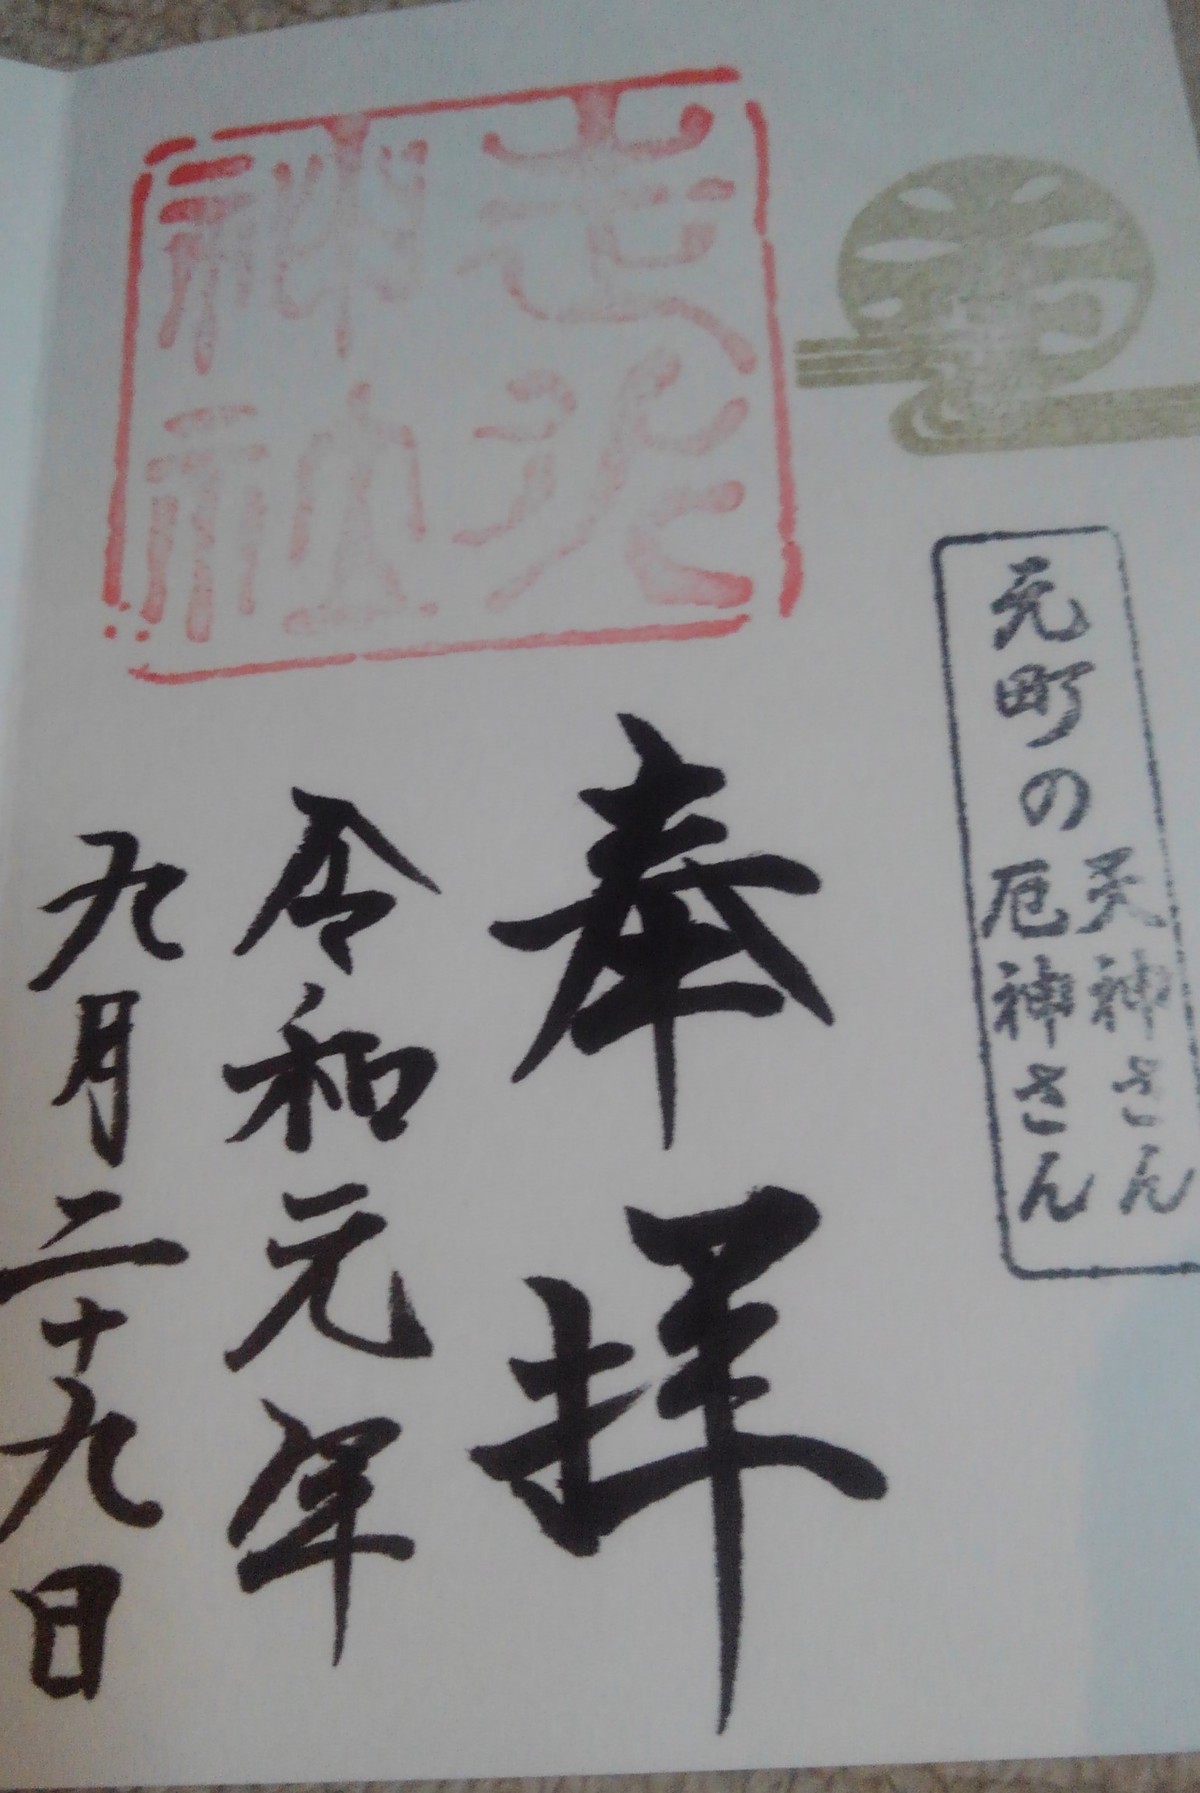 元町の
天神さん
厄神さん
走水
神社
奉拝
令和元年
九月二十九日